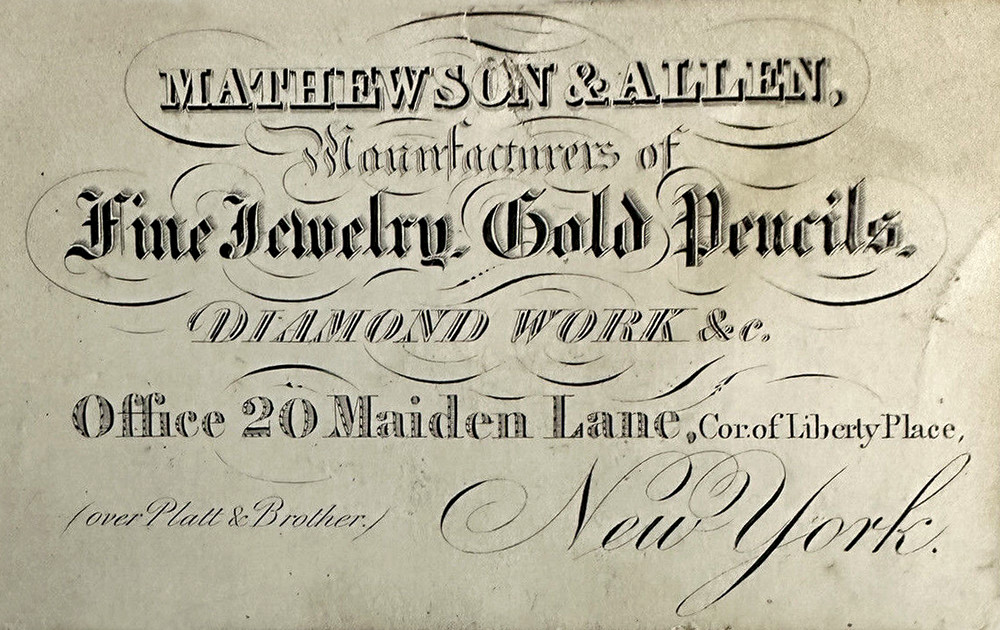 MATHEWSON & ALLEN,
Manufacturers of
Fine Jewelry. Gold Pencils.
DIAMOND WORK &c.
Office 20 Maiden Lane, Cor. of Liberty Place,
(over Platt & Brother.) New York.